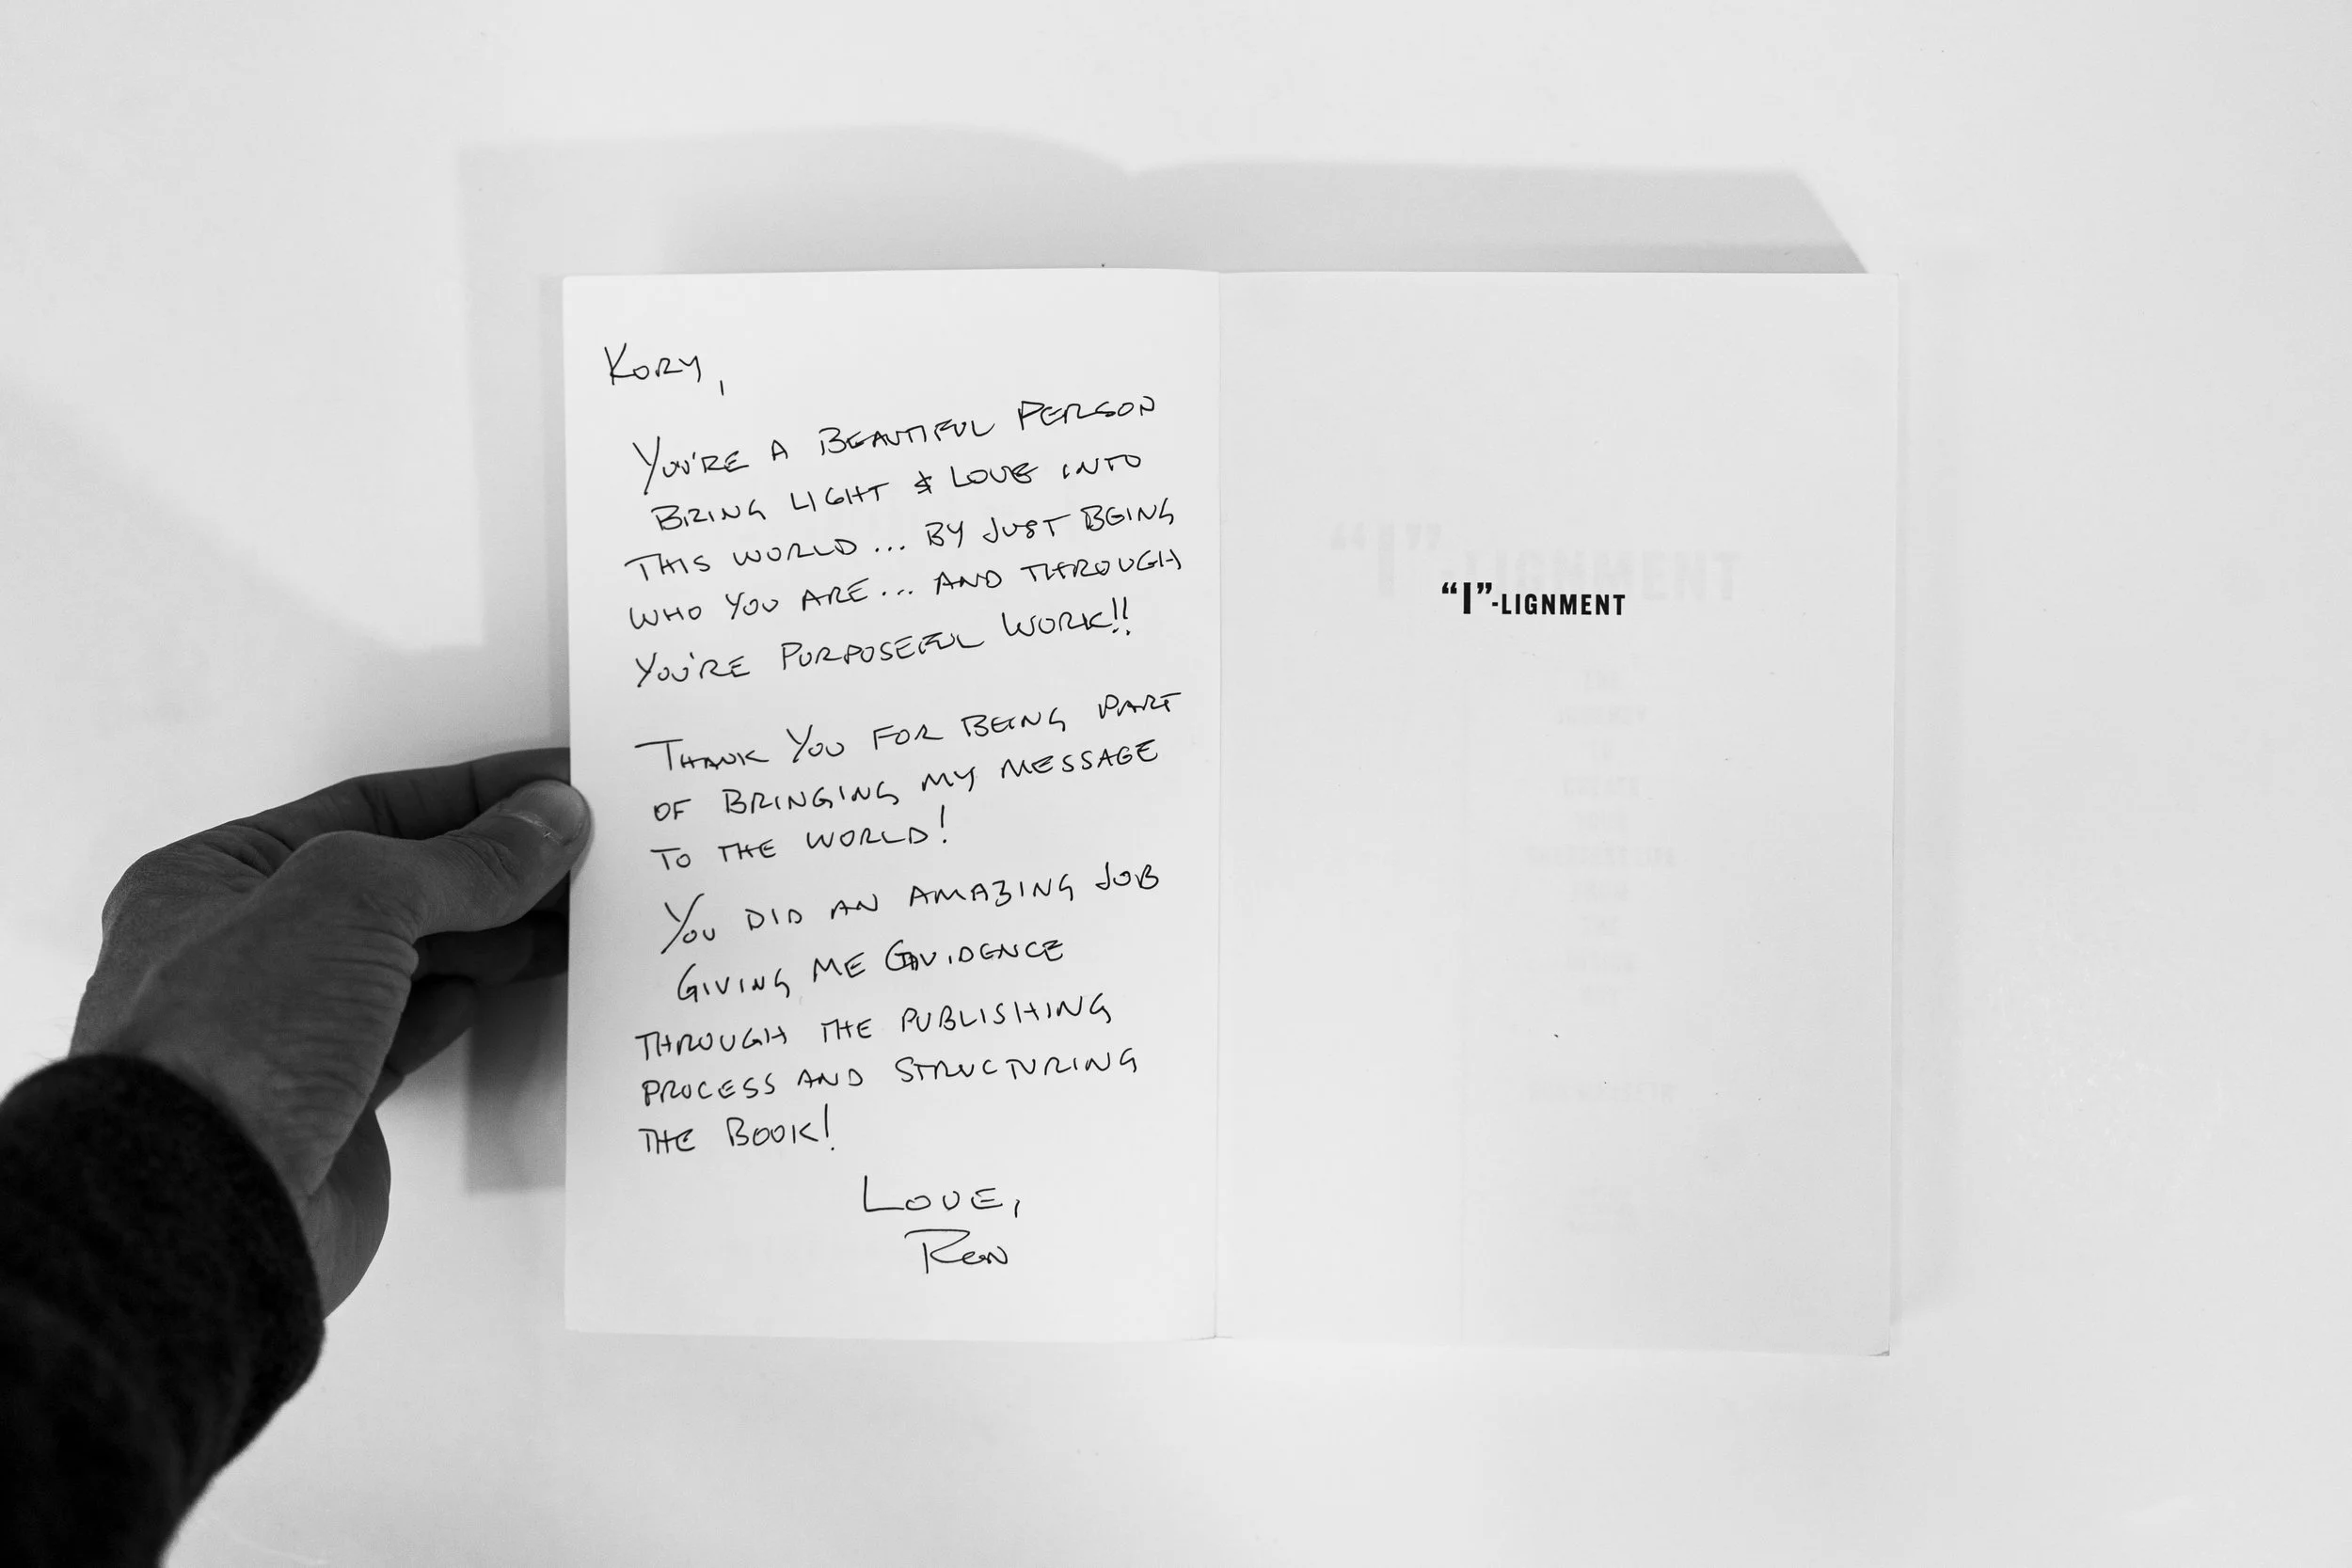 KORY,
YOU'RE A BEAUTIFUL PERSON
BRING LIGHT & LOVE INTO
THIS WORLD... BY JUST BEING
WHO YOU ARE... AND THROUGH
YOU'RE PURPOSEFUL WORK!!
THANK YOU FOR BEING PART
OF BRINGING MY MESSAGE
TO THE WORLD!
YOU DID AN AMAZING JOB
GIVING ME GUIDENCE
THROUGH THE PUBLISHING
PROCESS AND STRUCTURING
THE BOOK!
LOVE,
Ren
"I"-LIGNMENT
"I"-LIGNMENT